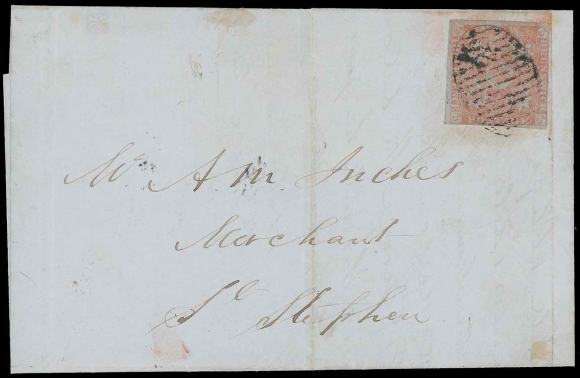 Mr A M Inches
Merchant
St Stephen